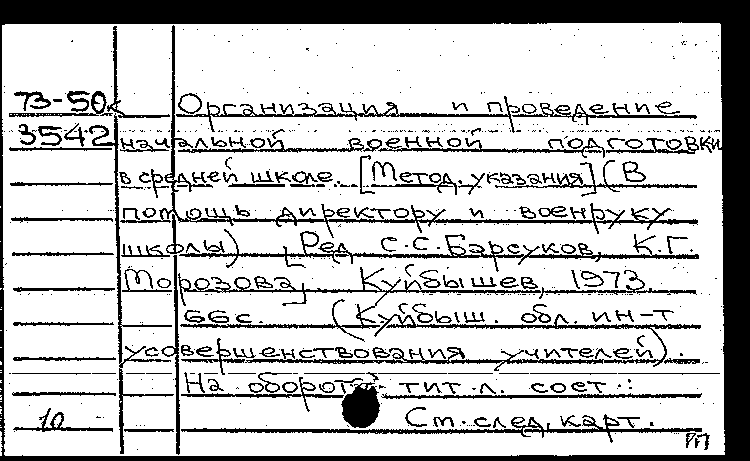 73-50к Организация и проведение
3542 начальной военной подготовки
в средней школе. [Метод. указания] (В
помощь директору и военруку
школы) [Ред. С.С. Барсуков, К.Г.
Морозова]. Куйбышев, 1973.
66с. (Куйбыш. обл. ин-т
усовершенствования учителей).
На обороте тит.л. сост.:
10 См. след. карт.
РП